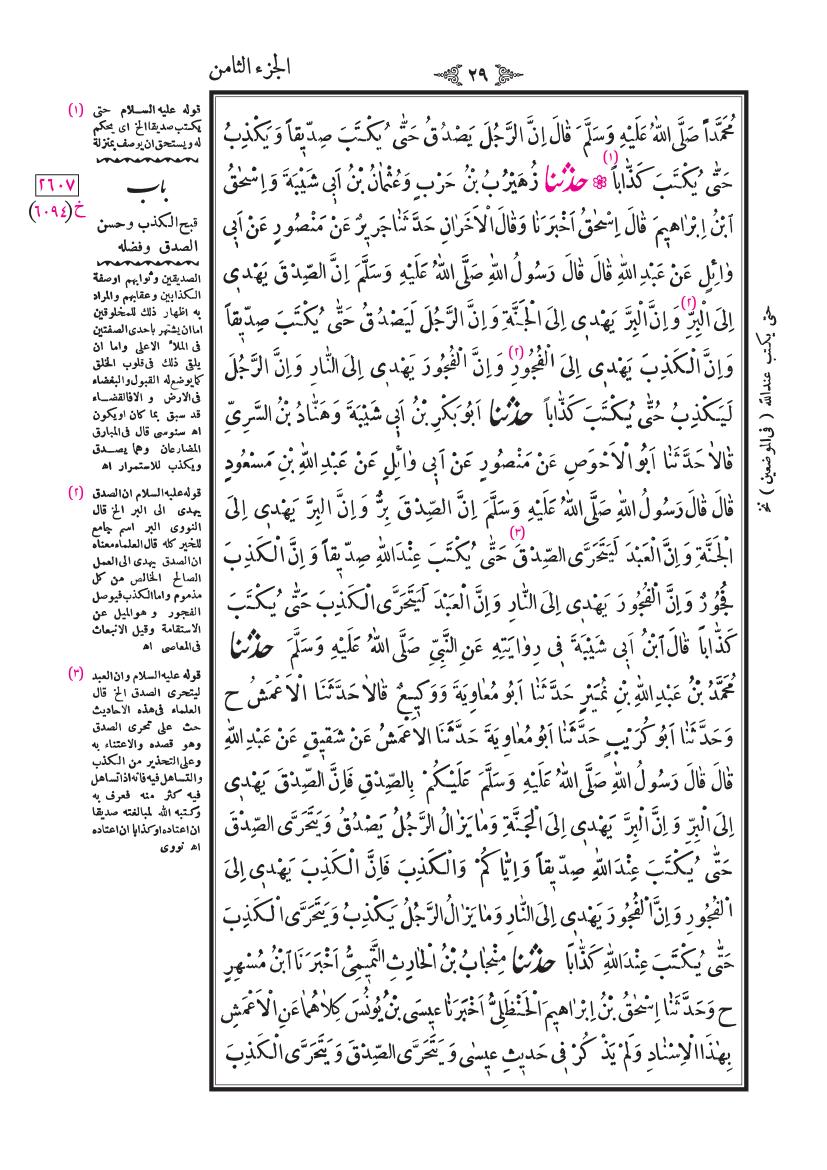 الجزء الثامن
٢٩
مُحَمَّداً صَلَّى اللهُ عَلَيْهِ وَسَلَّمَ قَالَ اِنَّ الرَّجُلَ يَصْدُقُ حَتّٰى يُكْتَبَ صِدّيقاً وَيَكْذِبُ
حَتّٰى يُكْتَبَ كَذّاباً (١) ❁ حدثنا زُهَيْرُ بْنُ حَرْبٍ وَعُثْمٰانُ بْنُ اَبي شَيْبَةَ وَاِسْحٰقُ
ابْنُ اِبْرٰاهيمَ قَالَ اِسْحٰقُ اَخْبَرَنٰا وَقَالَ الْآخَرٰانِ حَدَّثَنٰا جَريرٌ عَنْ مَنْصُورٍ عَنْ اَبي
وٰائِلٍ عَنْ عَبْدِ اللهِ قَالَ قَالَ رَسُولُ اللهِ صَلَّى اللهُ عَلَيْهِ وَسَلَّمَ اِنَّ الصِّدْقَ يَهْدي
اِلَى الْبِرِّ (٢) وَاِنَّ الْبِرَّ يَهْدي اِلَى الْجَنَّةِ وَاِنَّ الرَّجُلَ لَيَصْدُقُ حَتّٰى يُكْتَبَ صِدّيقاً
وَاِنَّ الْكَذِبَ يَهْدي اِلَى الْفُجُورِ (٢) وَاِنَّ الْفُجُورَ يَهْدي اِلَى النّٰارِ وَاِنَّ الرَّجُلَ
لَيَكْذِبُ حَتّٰى يُكْتَبَ كَذّاباً حدثنا اَبُو بَكْرِ بْنُ اَبي شَيْبَةَ وَهَنّٰادُ بْنُ السَّرِيِّ
قَالاٰ حَدَّثَنٰا اَبُو الْاَحْوَصِ عَنْ مَنْصُورٍ عَنْ اَبي وٰائِلٍ عَنْ عَبْدِ اللهِ بْنِ مَسْعُودٍ
قَالَ قَالَ رَسُولُ اللهِ صَلَّى اللهُ عَلَيْهِ وَسَلَّمَ اِنَّ الصِّدْقَ بِرٌّ وَاِنَّ الْبِرَّ يَهْدي اِلَى
الْجَنَّةِ وَاِنَّ الْعَبْدَ لَيَتَحَرَّى الصِّدْقَ (٣) حَتّٰى يُكْتَبَ عِنْدَ اللهِ صِدّيقاً وَاِنَّ الْكَذِبَ
فُجُورٌ وَاِنَّ الْفُجُورَ يَهْدي اِلَى النّٰارِ وَاِنَّ الْعَبْدَ لَيَتَحَرَّى الْكَذِبَ حَتّٰى يُكْتَبَ
كَذّاباً قَالَ ابْنُ اَبي شَيْبَةَ في رِوٰايَتِهِ عَنِ النَّبِيِّ صَلَّى اللهُ عَلَيْهِ وَسَلَّمَ حدثنا
مُحَمَّدُ بْنُ عَبْدِ اللهِ بْنِ نُمَيْرٍ حَدَّثَنٰا اَبُو مُعٰاوِيَةَ وَوَكيعٌ قَالاٰ حَدَّثَنَا الْاَعْمَشُ ح
وَحَدَّثَنٰا اَبُو كُرَيْبٍ حَدَّثَنٰا اَبُو مُعٰاوِيَةَ حَدَّثَنَا الْاَعْمَشُ عَنْ شَقيقٍ عَنْ عَبْدِ اللهِ
قَالَ قَالَ رَسُولُ اللهِ صَلَّى اللهُ عَلَيْهِ وَسَلَّمَ عَلَيْكُمْ بِالصِّدْقِ فَاِنَّ الصِّدْقَ يَهْدي
اِلَى الْبِرِّ وَاِنَّ الْبِرَّ يَهْدي اِلَى الْجَنَّةِ وَمٰا يَزٰالُ الرَّجُلُ يَصْدُقُ وَيَتَحَرَّى الصِّدْقَ
حَتّٰى يُكْتَبَ عِنْدَ اللهِ صِدّيقاً وَاِيّٰاكُمْ وَالْكَذِبَ فَاِنَّ الْكَذِبَ يَهْدي اِلَى
الْفُجُورِ وَاِنَّ الْفُجُورَ يَهْدي اِلَى النّٰارِ وَمٰا يَزٰالُ الرَّجُلُ يَكْذِبُ وَيَتَحَرَّى الْكَذِبَ
حَتّٰى يُكْتَبَ عِنْدَ اللهِ كَذّاباً حدثنا مِنْجٰابُ بْنُ الْحٰارِثِ التَّميمِيُّ اَخْبَرَنَا ابْنُ مُسْهِرٍ
ح وَحَدَّثَنٰا اِسْحٰقُ بْنُ اِبْرٰاهيمَ الْحَنْظَلِيُّ اَخْبَرَنٰا عيسَى بْنُ يُونُسَ كِلاٰهُمٰا عَنِ الْاَعْمَشِ
بِهٰذَا الْاِسْنٰادِ وَلَمْ يَذْكُرْ في حَديثِ عيسٰى وَيَتَحَرَّى الصِّدْقَ وَيَتَحَرَّى الْكَذِبَ
حتى يكتب عند الله (في الموضعين) نخ
(١) قوله عليه السلام حتى
يكتب صديقا الخ اى يحكم
له ويستحق ان يوصف بمنزلة
باب
قبح الكذب وحسن
الصدق وفضله
٢٦٠٧
خ (٦٠٩٤)
الصديقين وثوابهم اوصفة
الكذابين وعقابهم والمراد
به اظهار ذلك للمخلوقين
اما ان يشتهر باحدى الصفتين
فى الملأ الاعلى واما ان
يلقى ذلك فى قلوب الخلق
كما يوضع له القبول والبغضاء
فى الارض والا فالقضاء
قد سبق بما كان او يكون
اه سنوسى قال فى المبارق
المضارعان وهما يصدق
ويكذب للاستمرار اه
(٢) قوله عليه السلام ان الصدق
يهدى الى البر الخ قال
النووى البر اسم جامع
للخير كله قال العلماء معناه
ان الصدق يهدى الى العمل
الصالح الخالص من كل
مذموم واما الكذب فيوصل
الفجور وهو الميل عن
الاستقامة وقيل الانبعاث
فى المعاصى اه
(٣) قوله عليه السلام وان العبد
ليتحرى الصدق الخ قال
العلماء فى هذه الاحاديث
حث على تحرى الصدق
وهو قصده والاعتناء به
وعلى التحذير من الكذب
والتساهل فيه فانه اذا تساهل
فيه كثر منه فعرف به
وكتبه الله لمبالغته صديقا
ان اعتاده او كذابا ان اعتاده
اه نووى